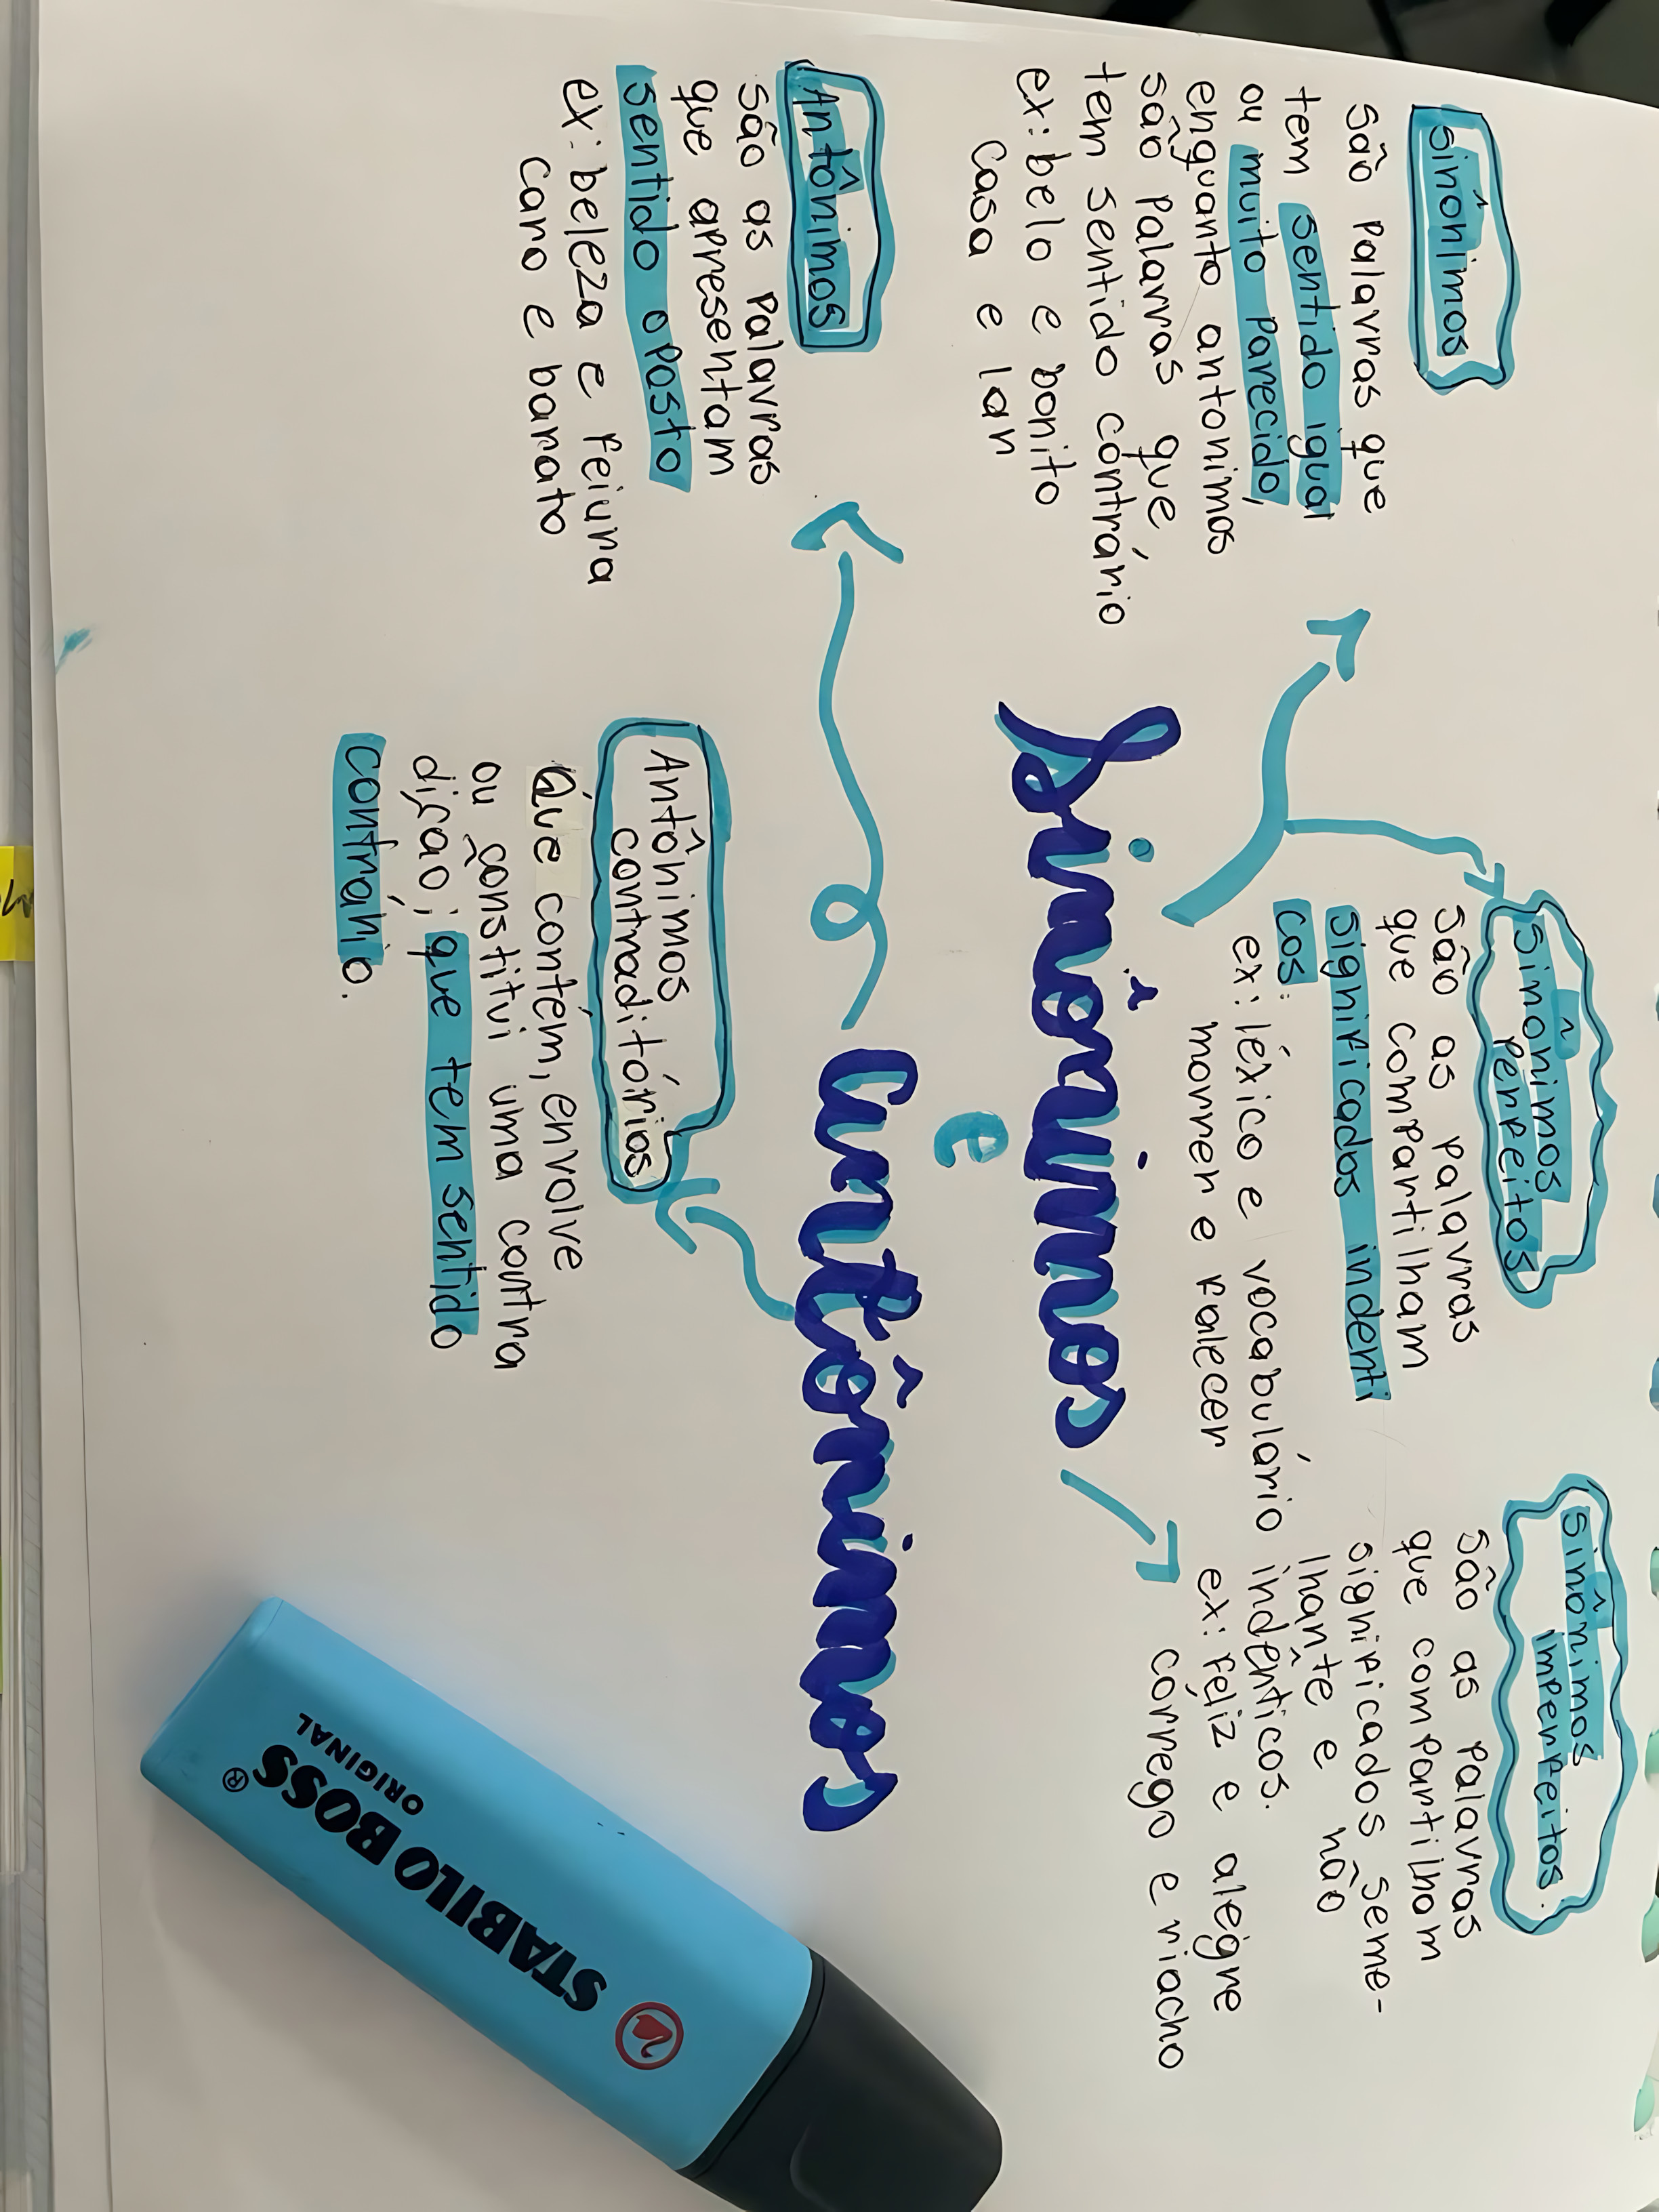 Sinônimos
são palavras que
tem sentido igual
ou muito parecido,
enquanto antonimos
são palavras que
tem sentido contrário
ex: belo e bonito
casa e lar
Sinônimos
perfeitos
são as palavras
que compartilham
significados indenti
cos:
ex: léxico e vocabulário
morrer e falecer
Sinônimos
imperfeitos.
são as palavras
que compartilham
significados seme-
lhante e não
indênticos.
ex: féliz e alegre
córrego e riacho
Sinônimos
e
Antônimos
Antônimos
são as palavras
que apresentam
sentido oposto
ex: beleza e feiura
caro e barato
Antônimos
contraditórios
Que contém, envolve
ou constitui uma contra
dição; que tem sentido
contrário.
STABILO BOSS
ORIGINAL